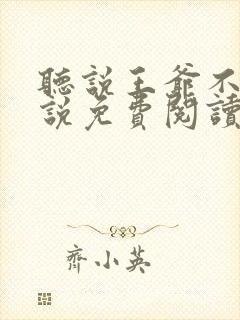 聽説王爺不
説免費閱讀
齊小英